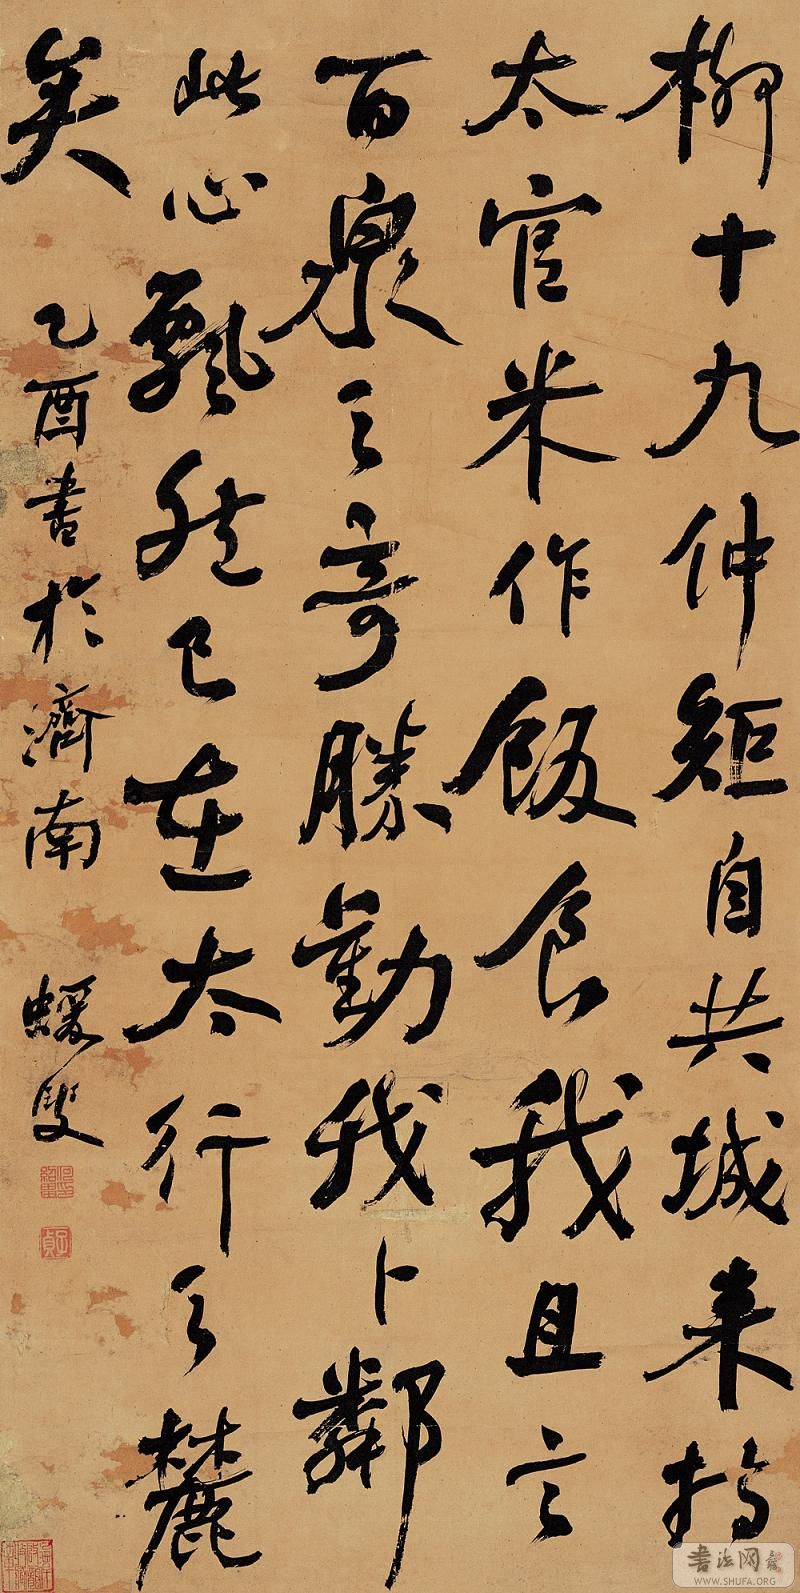 柳十九仲矩自共城来持
太官米作飯食我且言
百泉之奇勝勸我卜鄰
此心飄然已在太行之麓
矣
乙酉書於濟南
蝯叟
書法网
WWW.SHUFA.ORG